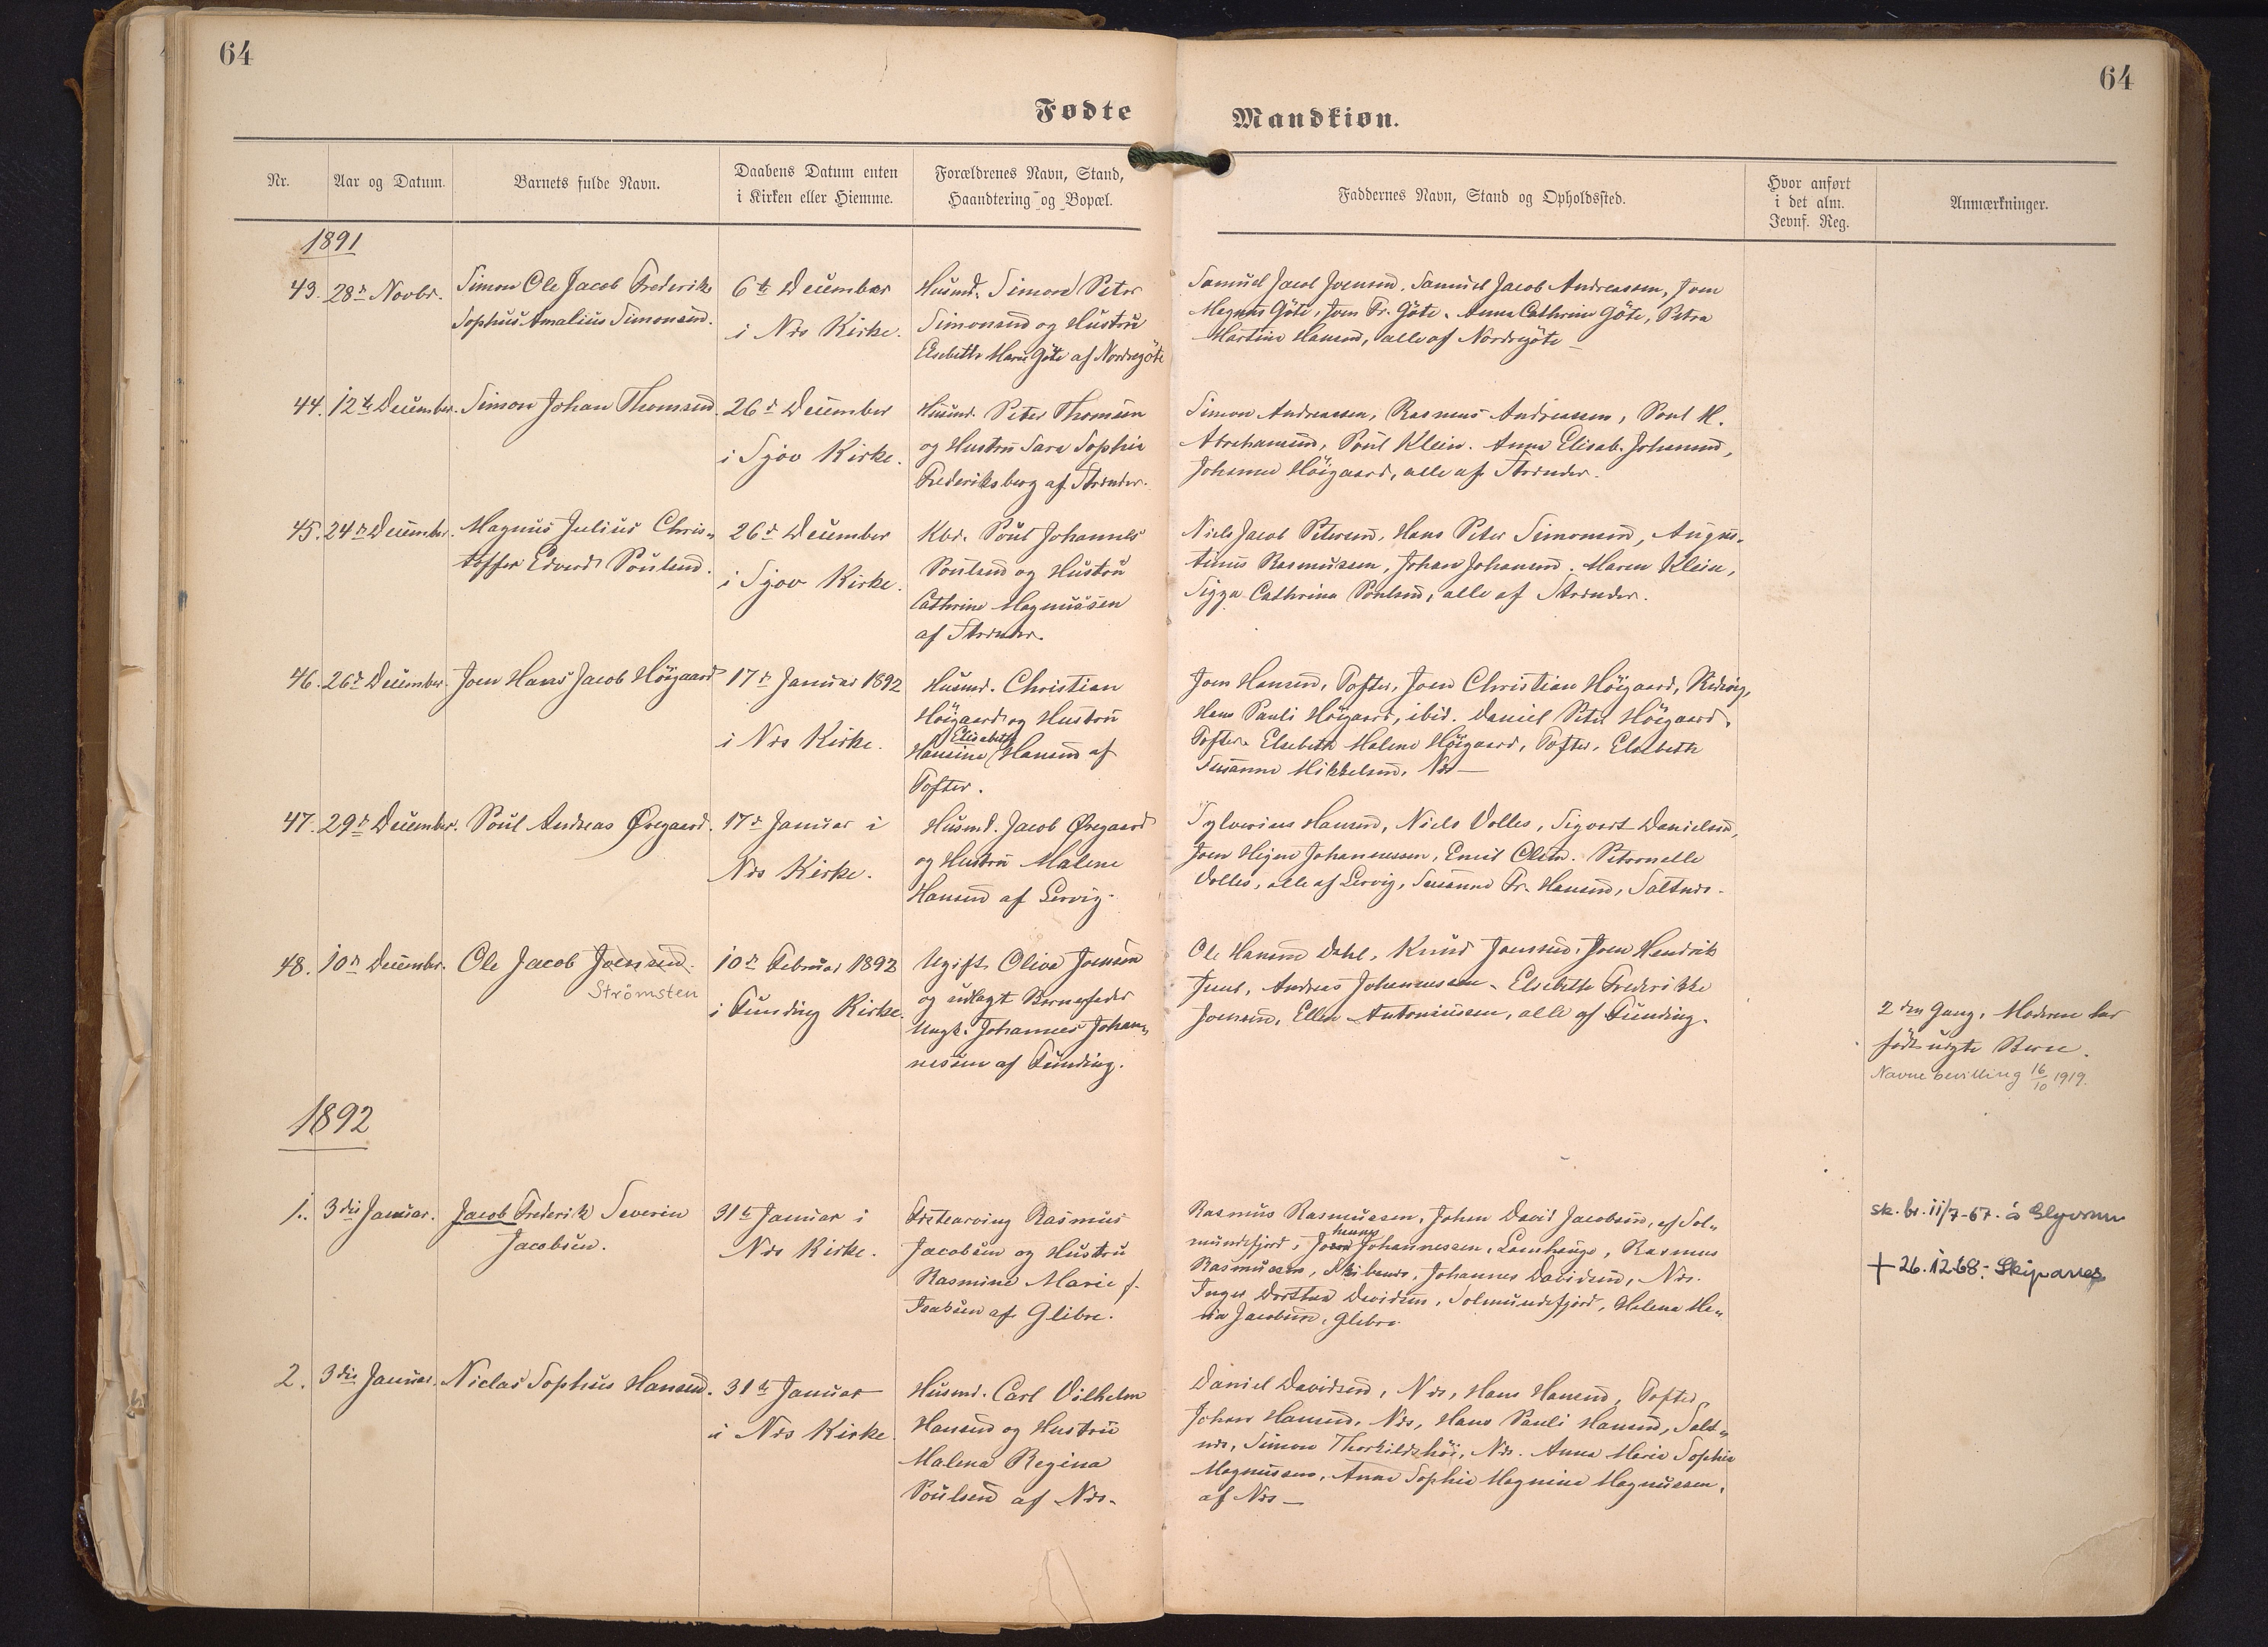 64
64
Fødte
Mandkiøn.
Nr.
Aar og Datum.
Barnets fulde Navn.
Daabens Datum enten
i Kirken eller Hiemme.
Forældrenes Navn, Stand,
Haandtering og Bopæl.
Faddernes Navn, Stand og Opholdssted.
Hvor anført
i det alm.
Jevnf. Reg.
Anmærkninger.
1891
43.
28d Novbr.
Simon Ole Jacob Frederik
Sophus Amalius Simonsen.
6te December
i Nes Kirke.
Husmd. Simon Peter
Simonsen og Hustrü
Elsebeth Marie Göte af Nordregöte
Samüel Jacob Joensen, Samüel Jacob Andreassen, Joen
Magnus Göte, Joen Fr. Göte. Anna Cathrine Göte, Petra
Martine Hansen, alle af Nordregöte
44.
12te December.
Simon Johan Thomsen
26d December
i Sjov Kirke.
Husmd. Peter Thomsen
og Hustrü Sara Sophie
Frederiksberg af Strender.
Simon Andreassen, Rasmus Andreassen, Poul H.
Abrahamsen, Poul Klein. Anna Elisab. Johansen,
Johanne Höigaard, alle af Strender.
45.
24d December.
Magnus Julius Chris-
toffer Edvard Poulsen.
26d December
i Sjov Kirke.
Kbd. Poul Johannes
Poulsen og Hustrü
Cathrine Magnussen
af Strender.
Niels Jacob Petersen, Hans Peter Simonsen, Augus-
tinus Rasmussen, Johan Johansen. Maren Klein,
Sigga Cathrina Poulsen, alle af Strender.
46.
26d December.
Joen Hans Jacob Höigaard
17d Januar 1892
i Nes Kirke.
Husmd. Christian
Höigaard og Hustrü
Elisabeth
Hansine Hansen af
Tofter.
Joen Hansen, Tofter, Joen Christian Höigaard,
Hans Pauli Höigaard, ibid. Daniel Peter Höigaard,
Tofter. Elsebeth Malene Höigaard, Tofter, Elsebeth
Susanne Mikkelsen, Nes
47.
29d December.
Poul Andreas Øregaard.
17d Januar i
Nes Kirke.
Husmd. Jacob Øregaard
og Hustrü Malene
Hansen af Lervig.
Sylverius Hansen, Niels Dolles, Sigvart Danielsen,
Joen Johannessen, Emil Olsen. Petronelle
Dolles, alle af Lervig, Susanne Fr. Hansen, Saltnes.
48.
10d December.
Ole Jacob Joensen.
Strömsten
10d Februar 1892
i Funding Kirke.
Ugift Oliva Joensen
og udlagt Barnefader
Ungk. Johannes Johan-
nessen af Funding.
Ole Hansen Dahl, Knud Joensen, Joen Hendrik
Juul, Andreas Johannessen. Elsebeth Frederikke
Joensen, Ellen Antoniussen, alle af Funding.
2den Gang, Moderen har
født uægte Børn.
Navnebevilling 16/10 1919.
1892
1.
3die Januar.
Jacob Frederik Severin
Jacobsen.
31te Januar i
Nes Kirke.
Rasmus
Jacobsen og Hustrü
Rasmine Marie f.
Isaksen af Glibre.
Rasmus Rasmussen, Johan David Jacobsen, af Sol-
hannes
mundefjord, Joen Johannessen, Lamhauge, Rasmus
Rasmussen, Skibenes, Johannes Davidsen, Nes.
Inger Dorthea Davidsen, Solmundefjord, Helena Ma-
ria Jacobsen, Glibre.
sk. br. 11/7-67. á Glyvrum
+ 26.12.68: Skipanes
2.
3die Januar.
Niclas Sophus Hansen.
31te Januar
i Nes Kirke
Husmd. Carl Vilhelm
Hansen og Hustrü
Malena Regina
Poulsen af Nes.
Daniel Davidsen, Nes, Hans Hansen, Tofter,
Johan Hansen, Nes, Hans Pauli Hansen, Salt-
nes, Simon Thorkildshöi, Nes. Anna Marie Sophie
Magnussen, Anna Sophie Magnine Magnussen,
af Nes